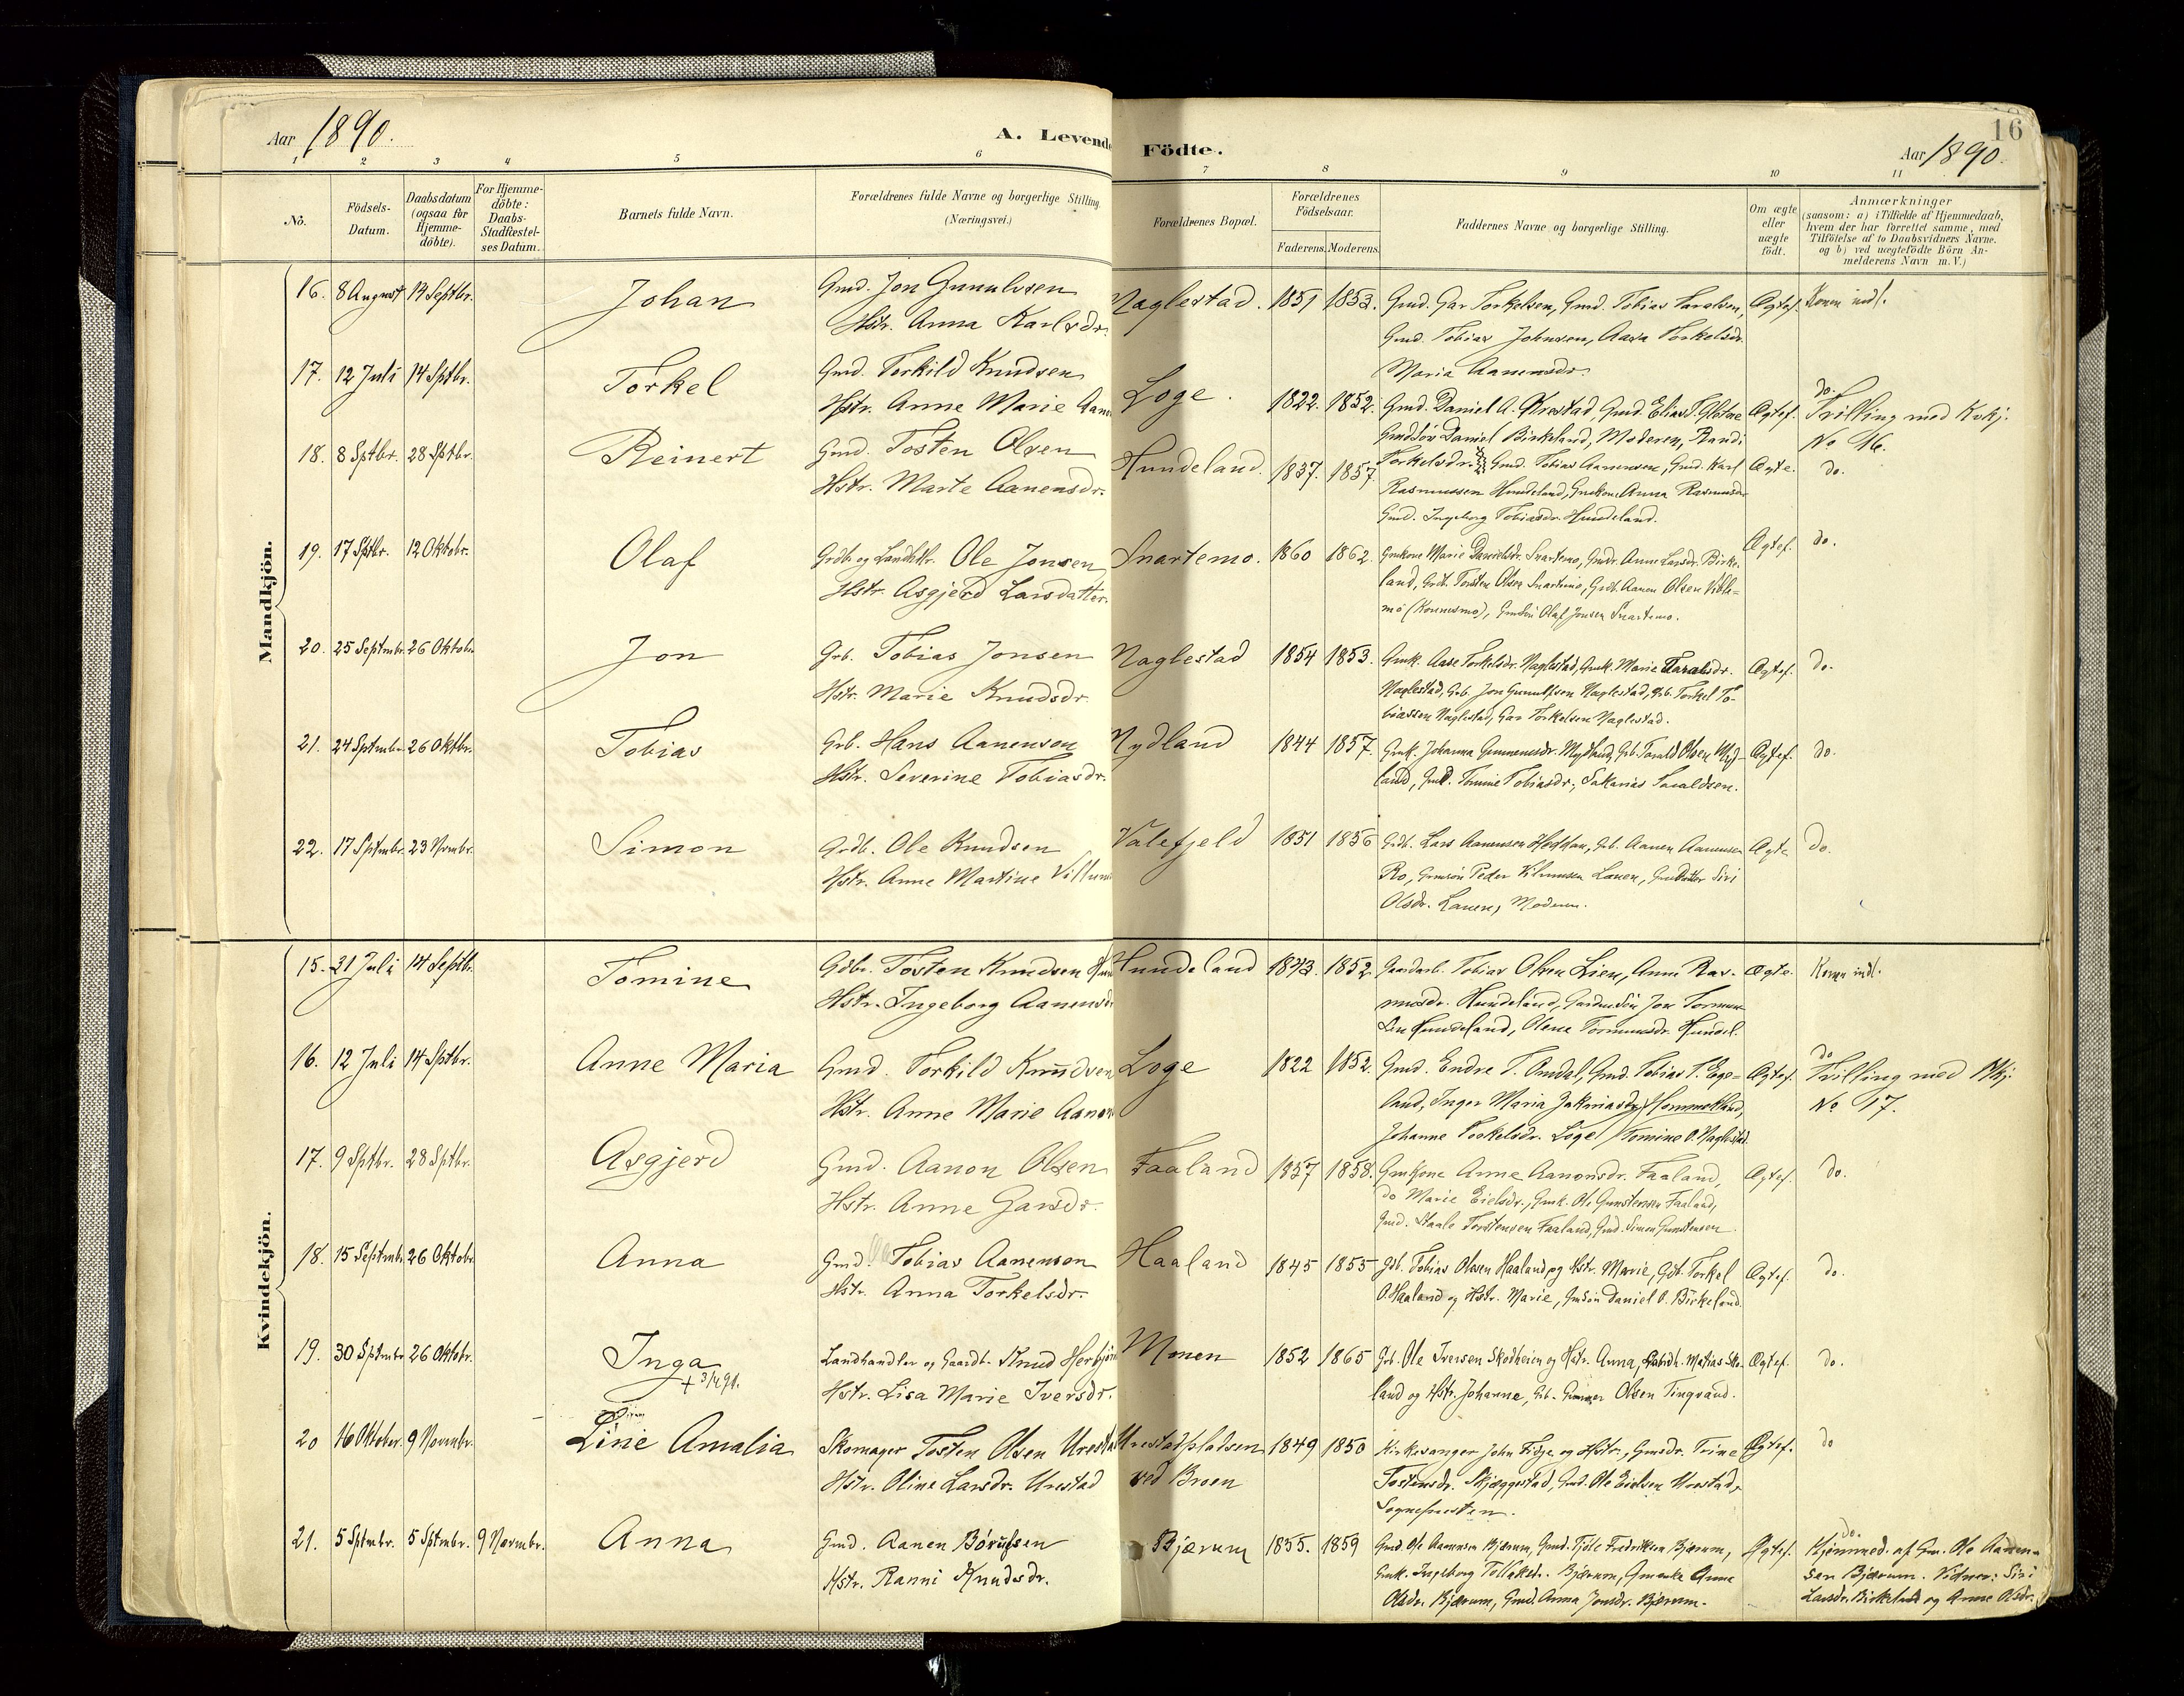 16
Aar 1890. A. Levende Födte. Aar 1890.
1 2 3 4 5 6 7 8 9 10 11
No. Födsels-Datum. Daabsdatum (ogsaa for Hjemmedöbte). For Hjemmedöbte: Daabs-Stadfæstelses Datum. Barnets fulde Navn. Forældrenes fulde Navne og borgerlige Stilling. (Næringsvei.) Forældrenes Bopæl. Forældrenes Födselsaar. Faderens. Moderens. Faddernes Navne og borgerlige Stilling. Om ægte eller uægte födt. Anmærkninger (saasom: a) i Tilfælde af Hjemmedaab, hvem der har forrettet samme, med Tilföielse af to Daabsvidners Navne. og b) ved uægtefödte Börn Anmelderens Navn m. V.)
Mandkjön.
16. 8 August 14 Septbr. Johan Gmd. Jon Gunulvsen Naglestad. 1851 1853. Gmd. Gar Torkelsen, Gmd. Tobias Taralsen, Ægtef. Konen indl.
Hstr. Anna Karlsdr. Gmd. Tobias Johnsen, Aasa Torkelsdr.
Maria Aanensdr.
17. 12 Juli 14 Sptbr. Torkel Gmd. Torkild Knudsen Loge. 1822. 1852. Gmd. Daniel A. Ørestad, Gmd. Elias T. Ægtef. do. Tvilling med Kvkj.
Hstr. Anne Marie Aan Gmdsön Daniel Birkeland, Moderen, Randi No 16.
18. 8 Sptbr. 28 Sptbr. Reinert Gmd. Tosten Olsen Hundeland. 1837. 1857. Torkelsdr. Gmd. Tobias Aanensen, Gmd. Karl Ægte. do.
Hstr. Marte Aanensdr. Rasmussen Hundeland, Gmkone Anna Rasmusdr
Gmd. Ingeborg Tobiasdr. Hundeland.
19. 17 Sptbr. 12 Oktobr. Olaf Grdb. og Landhdlr. Ole Jonsen Snartemo. 1860 1862. Gmkone Marie Danielsdr. Snartemo, Gmdr. Anne Larsdr. Birke- Ægtef. do.
Hstr. Asgjerd Larsdatter. land, Grdb. Torsten Olsen Snartemo, Grdb. Aanen Olsen Vible-
mo (Konnesmo), Gmsön Olaf Jonsen Snartemo.
20. 25 Septmbr. 26 Oktobr. Jon Grb. Tobias Jonsen Naglestad 1854 1853. Gmk. Aase Torkelsdr. Naglestad, Gmk. Marie Taralsdr. Ægtef. do.
Hstr. Marie Knudsdr. Naglestad, Grb. Jon Gunulfsen Naglestad, Grb. Torkel To-
biassen Naglestad, Gar Torkelsen Naglestad.
21. 24 Sptmbr. 26 Oktbr. Tobias Grb. Hans Aanenson Mydland 1844 1857. Gmk. Johanna Gunnensdr. Mydland, Grb. Tarald Olsen Myd- Ægtef. do.
Hstr. Severine Tobiasdr. land, Gmd. Tomine Tobiasdr., Sakarias Taraldsen.
22. 17 Sptmbr. 23 Novmbr. Simon Grdb. Ole Knudsen Valefjeld 1851 1856 Grdb. Lars Aanensen Heddan, Grb. Aanen Aanensen Ægte do.
Hstr. Anne Martine Villum Ro, Gmsön Peder Vilumsen Lauen, Gmdatter Siri
Olsdr. Lauen, Moderen.
Kvindekjön.
15. 31 Juli 14 Septbr. Tomine Gdbr. Tosten Knudsen Hundeland 1843. 1852. Gaardarb. Tobias Olsen Lien, Anne Ras- Ægte. Konen indl.
Hstr. Ingeborg Aanensdr musdr. Hundeland, Gardm.sön Jon Tormun-
sen Hundeland, Olene Tormunsdr. Hundel.
16. 12 Juli 14 Sptbr. Anne Maria Gmd. Torkild Knudsen Loge 1822 1852. Gmd. Endre T. Omdal, Gmd. Tobias T. Ege- Ægtef. do Tvilling med Mkj.
Hstr. Anne Marie Aanon land, Inger Maria Zakariasdr. Hommekland, No 17.
Johanne Torkelsdr. Loge / Tomine O. Naglestad.
17. 9 Sptbr. 28 Sptbr. Asgjerd Gmd. Aanon Olsen Faaland 1857 1858. Gmkone Anne Aanonsdr. Faaland, Ægtef. do.
Hstr. Anne Garsdr. do Marie Eielsdr., Gmk. Ole Gunstensen Faaland,
Gmd. Staale Torstensen Faaland, Gmd. Simon Gunstensen.
18. 15 Septmbr 26 Oktobr Anna Gmd. Tobias Aanenson Haaland 1845 1855 Gdb. Tobias Olsen Haaland og Hstr. Marie, Gdb. Torkel Ægtef. do.
Hstr. Anna Torkelsdr. O. Haaland og Hstr. Marie, Gmsön Daniel O. Birkeland.
19. 30 Sptmbr 26 Oktobr. Inga Landhandler og Gaardb. Knud Herbjörn Monen 1852 1865 Grb. Ole Iversen Skodheien og Hstr. Anna, Matias Sko- Ægtef. do.
+ 3/4 91. Hstr. Lisa Marie Iversdr. land og Hstr. Johanne, Grb. Gunner Olsen Tingvand.
20 16 Oktober. 9 Novmbr. Line Amalia Skomager Tosten Olsen Urestad Urestadpladsen 1849 1850 Kirkesanger John Fidje og Hstr., Gmsdr. Trine Ægtef. do
Hstr. Oline Larsdr. Urestad ved Broen Tostensdr. Skjæggestad, Gmd. Ole Eielsen Urestad,
Sognepresten.
21. 5 Sptmbr. 5 Sptmbr. 9 Novmbr. Anna Gmd. Aanen Börufsen Bjærum 1855. 1859 Gmd Ole Aanensen Bjærum, Gmd. Fredriksen Bjærum, Ægtef. do. Hjemmed. af Gm. Ole Aanen-
Hstr. Ranni Knudsdr. Gmk. Ingeborg Tollaksdr. Bjærum, Gmenke Anne sen Bjærum. Vidner: Siri
Olsdr. Bjærum, Gmd. Anna Jonsdr. Bjærum. Larsdr. Birkeland og Anne Olsdr.